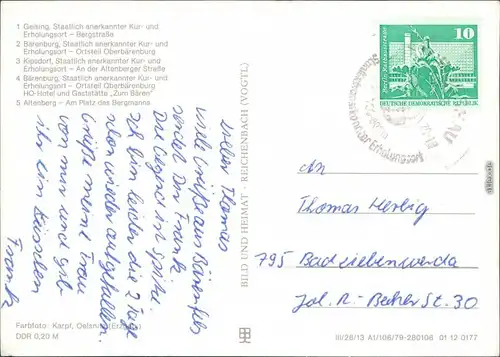 1 Geising, Staatlich anerkannter Kur- und
Erholungsort – Bergstraße
2 Bärenburg, Staatlich anerkannter Kur- und
Erholungsort – Ortsteil Oberbärenburg
3 Kipsdorf, Staatlich anerkannter Kur- und
Erholungsort – An der Altenberger Straße
4 Bärenburg, Staatlich anerkannter Kur- und
Erholungsort – Ortsteil Oberbärenburg
HO-Hotel und Gaststätte „Zum Bären"
5 Altenberg – Am Platz des Bergmanns
Lieber Thomas
viele Grüße aus Bärenfels
sendet Dir Frank
Die Gegend ist spitze
ich bin leider die 2 Tage
schon wieder aufgefallen.
Grüße meine Frau
von mir und gib
ihr ein Küsschen
Frank
Farbfoto: Karpf, Oelsnitz (Erzgeb.)
DDR 0,20 M
BILD UND HEIMAT · REICHENBACH (VOGTL)
10
Berlin, Neptunbrunnen
DEUTSCHE DEMOKRATISCHE REPUBLIK
An
Thomas Herbig
795 Bad Liebenwerda
Joh. R.- Becher St. 30
III/26/13 A1/106/79-280106 01 12 0177